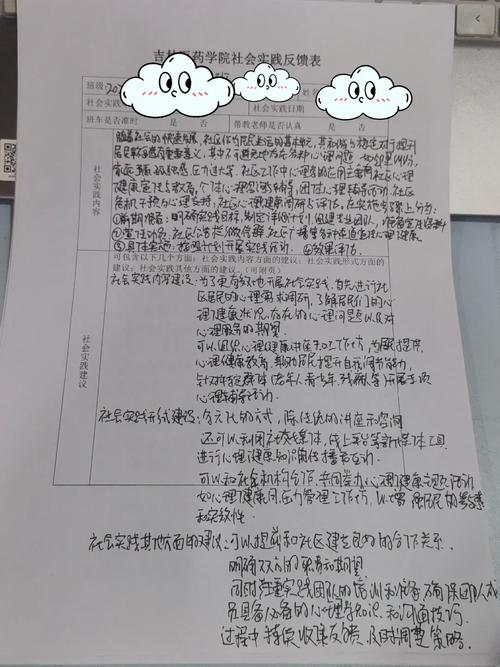 吉林医药学院社会实践反馈表
班级
社会实践 社会实践日期
班车是否准时 是 否 带教老师是否认真 是 否
社会实践内容
随着社会的快速发展,社区作为居民生活的基本单元,其和谐与稳定对于提升
居民 有重要意义,其中不可避免地存在各种心理问题,如邻里纠纷,
家庭 孤独感,压力过大等,社区工作中心理学的应用主要是社区心理
健康宣传与教育,个体心理咨询与辅导,团体心理辅导活动,社区
危机干预与心理支持,社区心理健康调研与评估,在实施步骤上分为:
①前期准备:明确实践目标,制定详细计划,组建专业团队,准备宣传资料
②宣传动员:社区公告栏,微信群,社区广播等多种渠道宣传心理健康
③具体实施:按照计划开展实践活动. ④效果评估.
可包含以下几个方面:社会实践内容方面的建议;社会实践形式方面的
建议;社会实践其他方面的建议。(可附页)
社会实践建议
社会实践内容建议:为了更有效地开展社会实践,首先进行社
区居民的心理需求调研,了解居民们的心
理健康状况、存在的心理问题以及对
心理服务的期望.
可以组织心理健康讲座和工作坊,为 提供
心理健康教育,帮助居民提升自我调节能力,
针对特殊群体(老年人、青少年、残疾人等)开展专项
心理辅导活动.
社会实践形式建议:多元化的方式,除传统的讲座和咨询
还可以利用社交媒体,线上平台等新媒体工具
进行心理健康知识的传播和互动.
可以和社会机构合作,共同举办心理健康主题活动
如心理健康周、压力管理工作坊,以增强居民的参与感
和实效性.
社会实践其他方面的建议:可以提前和社区建立良好的合作关系.
明确双方的职责和期望
同时注重实践团队的培训和准备,确保团队成
员具备必备的心理学知识和沟通技巧.
过程中持续收集反馈,及时调整策略.